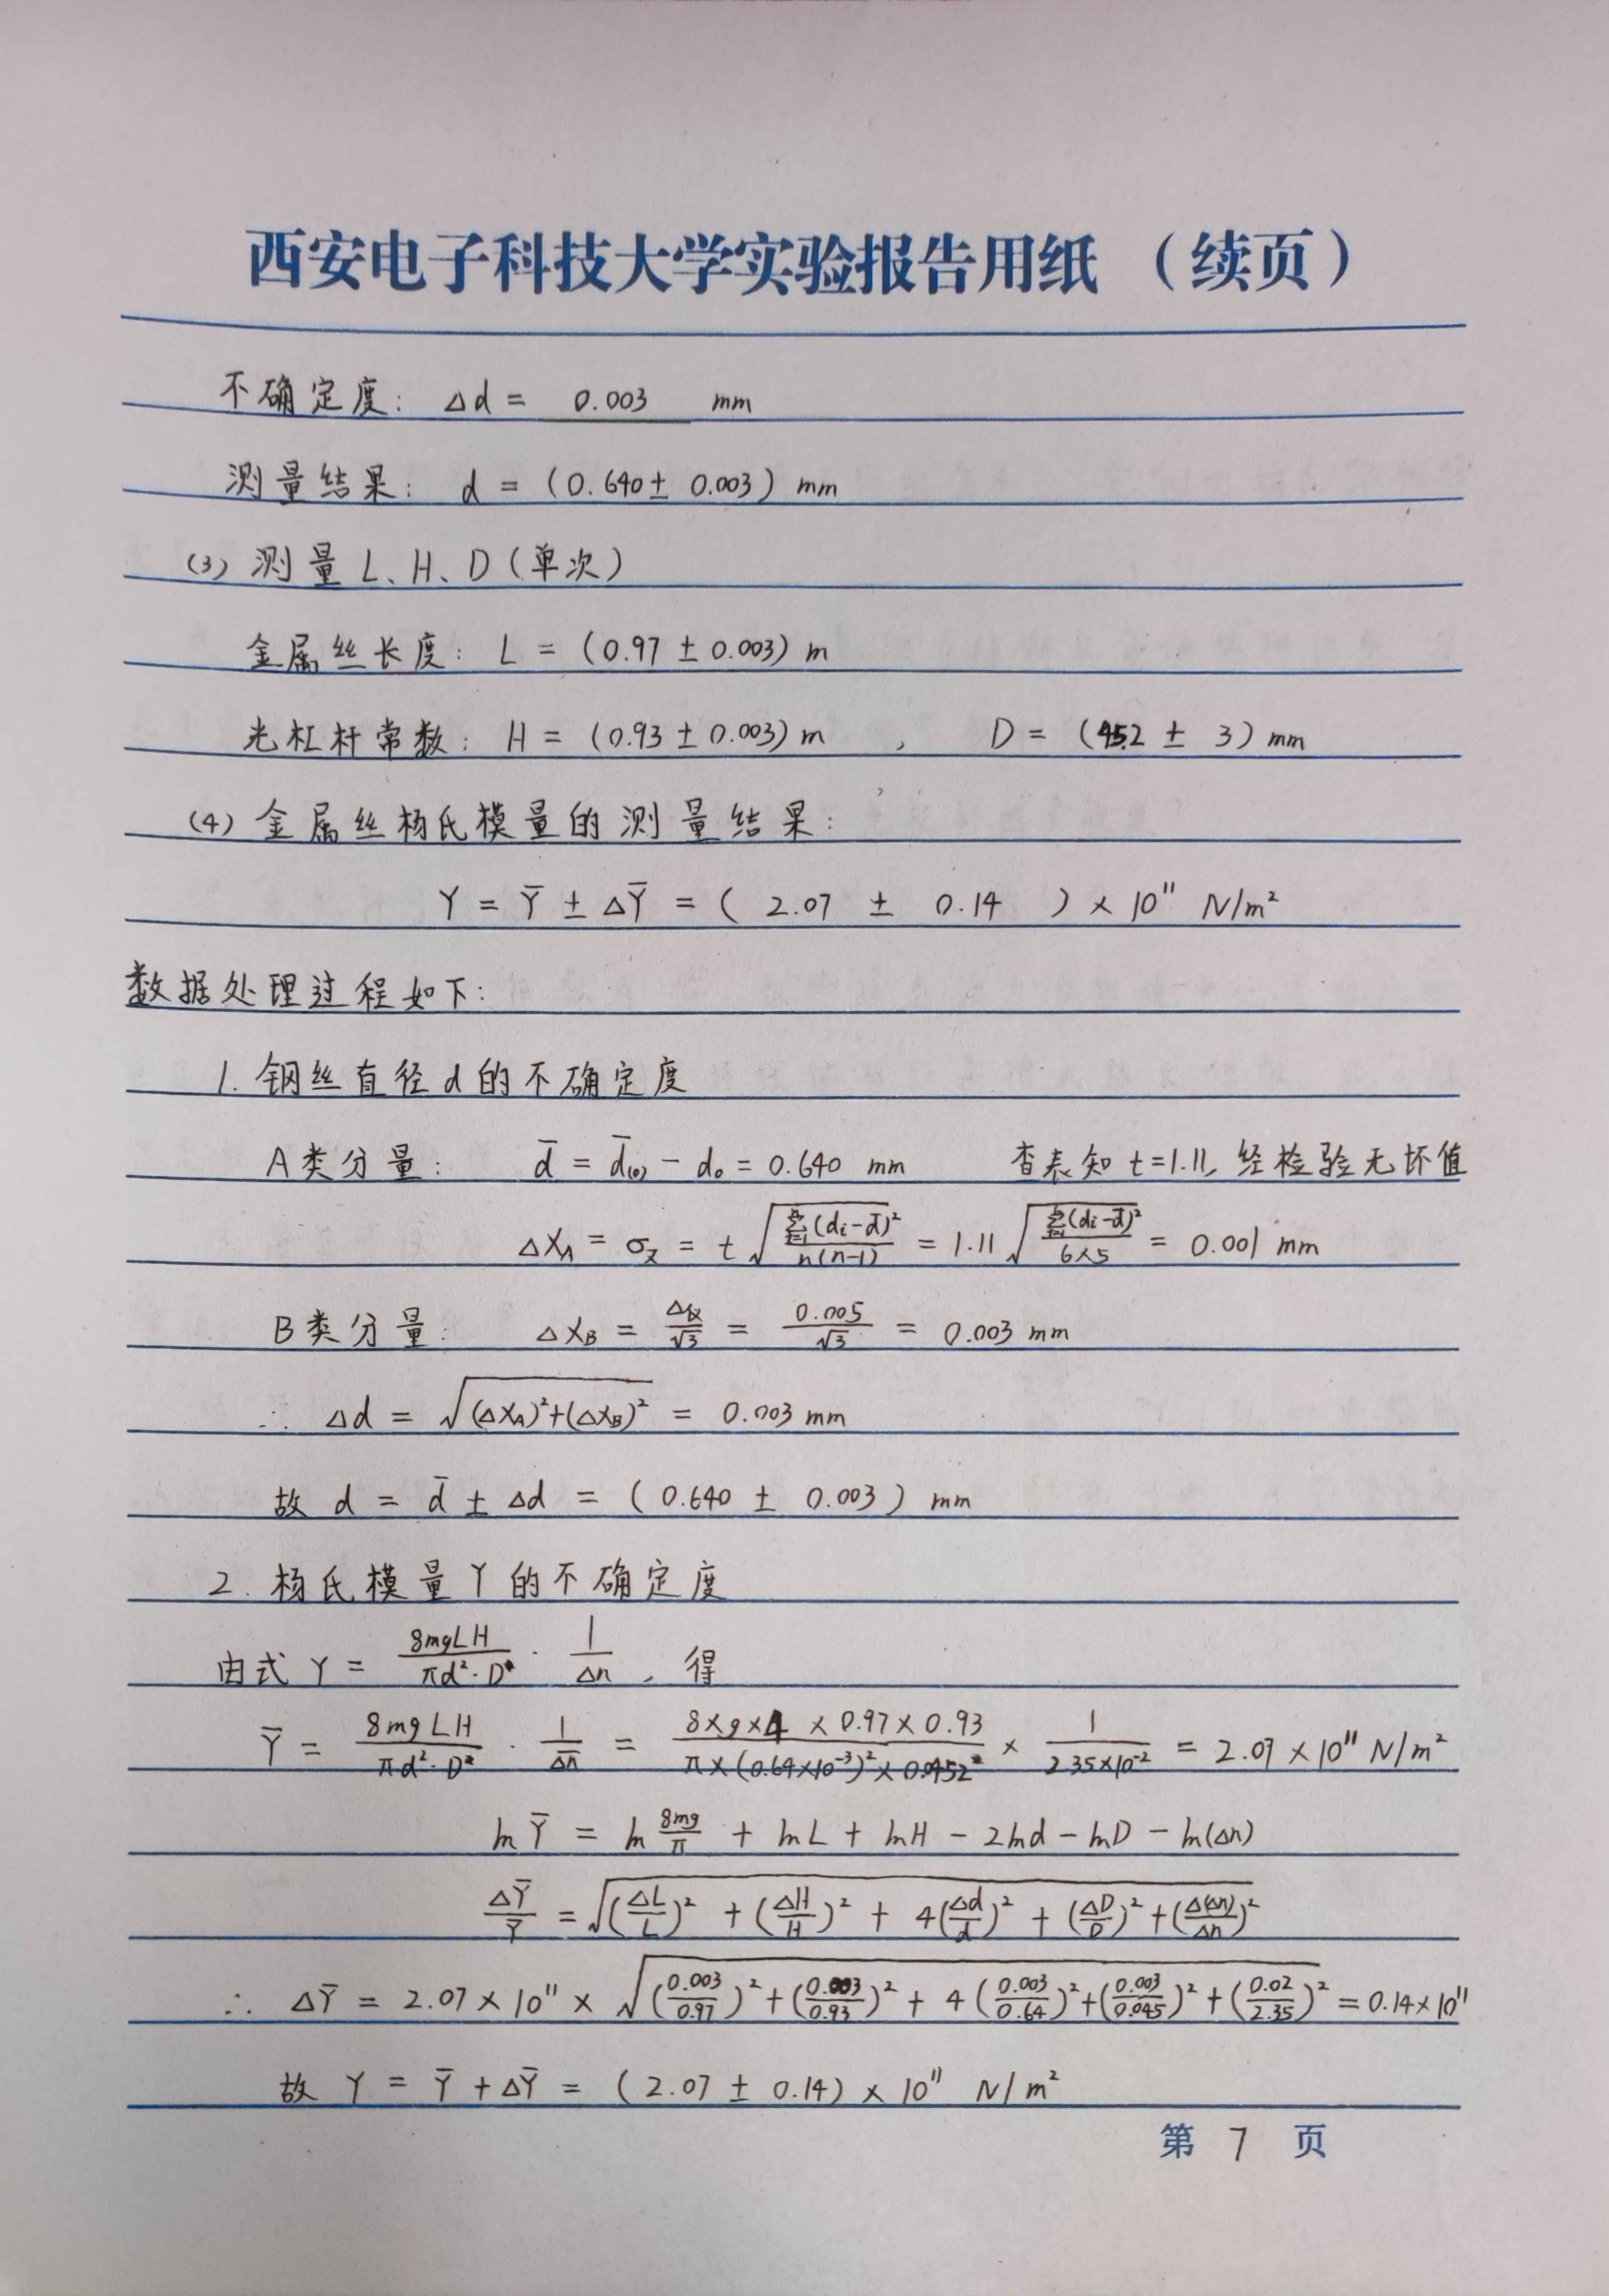 西安电子科技大学实验报告用纸 (续页)
不确定度: Δd = 0.003 mm
测量结果: d = (0.640 ± 0.003) mm
(3) 测量 L、H、D (单次)
金属丝长度: L = (0.97 ± 0.003) m
光杠杆常数: H = (0.93 ± 0.003) m , D = (45.2 ± 3) mm
(4) 金属丝杨氏模量的测量结果:
Y = Ȳ ± ΔȲ = ( 2.07 ± 0.14 ) × 10¹¹ N/m²
数据处理过程如下:
1. 钢丝直径 d 的不确定度
A类分量: d̄ = d̄₍₀₎ - d₀ = 0.640 mm 查表知 t=1.11, 经检验无坏值
ΔX_A = σ_x = t √(Σ(di-d̄)²/n(n-1)) = 1.11 √(Σ(di-d̄)²/6×5) = 0.001 mm
B类分量: ΔX_B = Δ仪/√3 = 0.005/√3 = 0.003 mm
∴ Δd = √((ΔX_A)²+(ΔX_B)²) = 0.003 mm
故 d = d̄ ± Δd = ( 0.640 ± 0.003 ) mm
2. 杨氏模量 Y 的不确定度
由式 Y = 8mgLH/πd²·D · 1/Δn , 得
Ȳ = 8mgLH/πd²·D · 1/Δn̄ = 8×g×4×0.97×0.93/π×(0.64×10⁻³)²×0.0452 × 1/2.35×10⁻² = 2.07×10¹¹ N/m²
ln Ȳ = ln 8mg/π + lnL + lnH - 2lnd - lnD - ln(Δn)
ΔȲ/Ȳ = √((ΔL/L)² + (ΔH/H)² + 4(Δd/d)² + (ΔD/D)² + (Δ(Δn)/Δn)²)
∴ ΔȲ = 2.07×10¹¹ × √((0.003/0.97)² + (0.003/0.93)² + 4(0.003/0.64)² + (0.003/0.045)² + (0.02/2.35)²) = 0.14×10¹¹
故 Y = Ȳ + ΔȲ = ( 2.07 ± 0.14 ) × 10¹¹ N/m²
第 7 页